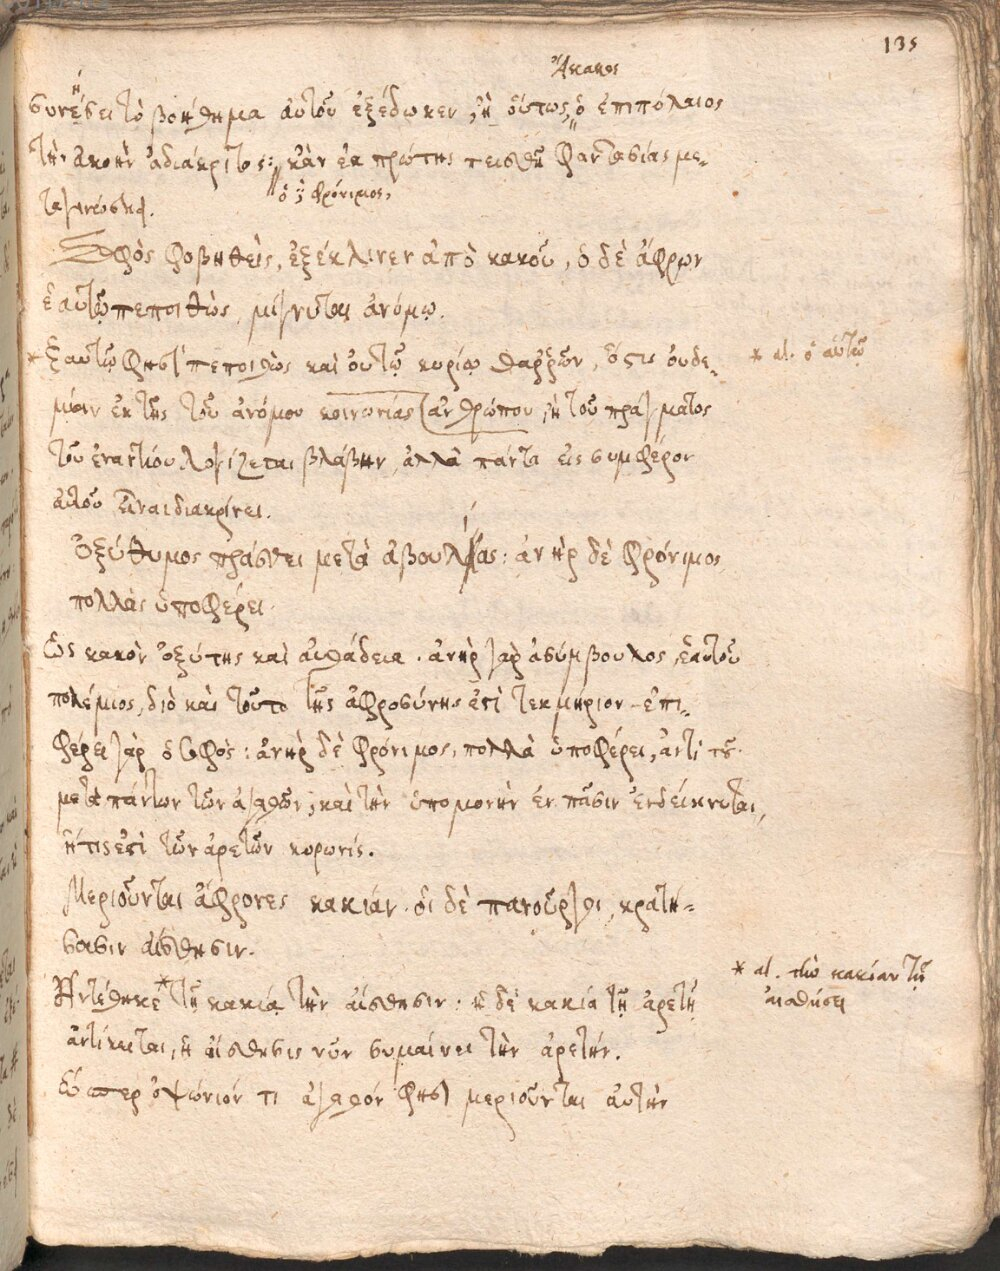 135
Ἄκακος
συνέσει τὸ βοήθημα αὐτοῦ ἐξέδωκεν, ἢ οὕτως, ὁ ἐπιπόλαιος
τὴν ἀκοὴν ἀδιάκριτος: κἂν ἐκ πρώτης πεισθῇ φαντασίας με-
ὁ φρόνιμος,
ταγινώσκει.
Σοφὸς φοβηθεὶς, ἐξέκλινεν ἀπὸ κακοῦ, ὁ δὲ ἄφρων
ἑαυτῷ πεποιθὼς, μίγνυται ἀνόμῳ.
* Ἑαυτῷ φησὶ πεποιθὼς καὶ οὐ τῷ κυρίῳ θαῤῥῶν, ὅστις οὐδε-
* al. ὁ αὐτῷ
μίαν ἐκ τῆς τοῦ ἀνόμου κοινωνίας ἀνθρώπου, ἢ τοῦ πράγματος
τοῦ ἐναντίου λογίζεται βλάβην, ἀλλὰ πάντα εἰς συμφέρον
αὐτοῦ εἶναι διακρίνει.
Ὀξύθυμος πράσσει μετὰ ἀβουλίας: ἀνὴρ δὲ φρόνιμος
πολλὰς ὑποφέρει.
Ὡς κακὸν ὀξύτης καὶ αὐθάδεια. ἀνὴρ γὰρ ἀσύμβουλος, ἑαυτοῦ
πολέμιος, διὸ καὶ τοῦτο τῆς ἀφροσύνης ἐστὶ τεκμήριον ἐπι-
φέρει γὰρ ὁ σοφὸς: ἀνὴρ δὲ φρόνιμος, πολλὰ ὑποφέρει, ἀντὶ τοῦ
μετὰ πάντων τῶν ἀγαθῶν, καὶ τὴν ὑπομονὴν ἐν πᾶσιν ἐνδείκνυται,
ἥτις ἐστὶ τῶν ἀρετῶν κορωνίς.
Μεριοῦνται ἄφρονες κακίαν. οἱ δὲ πανοῦργοι, κρατή-
σουσιν αἴσθησιν.
Ἀντέθηκε * τῇ κακίᾳ τὴν αἴσθησιν. ἡ δὲ κακία τῇ ἀρετῇ
* al. τὴν κακίαν τῇ
αἰσθήσει
ἀντίκειται, ἡ αἴσθησις νῦν σημαίνει τὴν ἀρετήν.
Ὥσπερ ὀψώνιόν τι ἀγαθόν φησὶ μεριοῦνται αὐτὴν